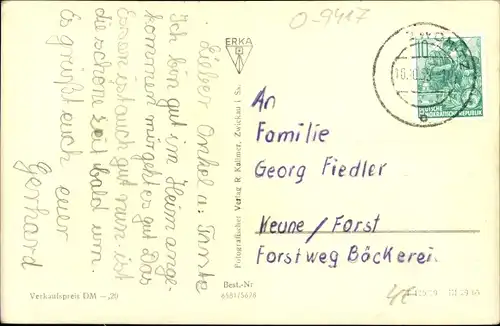 O-9417
Lieber Onkel u. Tannte
Ich bin gut im Heim ange-
kommen mir geht es gut Das
Essen ist auch gut nun ist
die schöne Zeit bald um.
Es grüßt euch euer
Gerhard
ERKA
Fotografischer Verlag R Kallmer, Zwickau i. Sa.
10
DEUTSCHE
DEMOKRATISCHE REPUBLIK
An
Familie
Georg Fiedler
Keune/Forst
Forstweg Böckerei
Verkaufspreis DM —,20
Best.-Nr
6551/5678